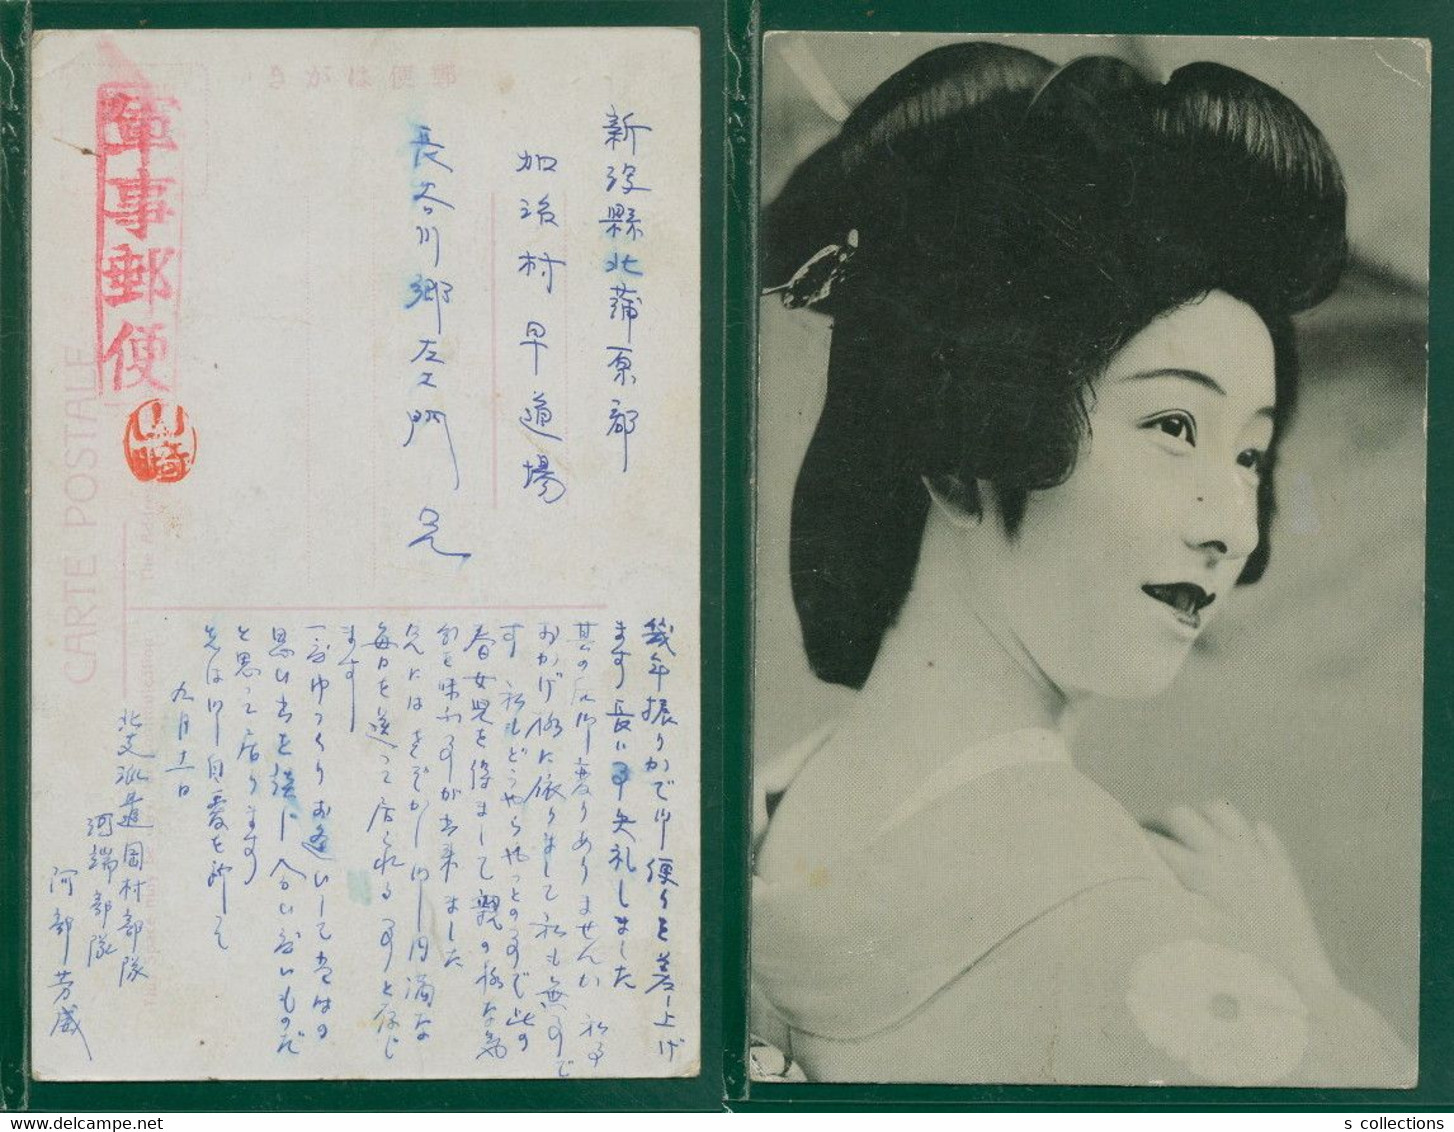 郵便はがき
軍事郵便
山崎
CARTE POSTALE
新潟縣北蒲原郡
加治村早道場
長谷川郷左エ門兄
幾年振りかで御便りを差上げ
ます長い事失礼しました
其の后御変りありませんか 私事
おかげ様に依りまして私も無事で
す 私もどうやらやっとの事で此の
春女児を得まして親の様な気
分を味ふ事が出来ました
兄にはさぞかし御円満な
毎日を送って居られる事と存じ
ます
一度ゆっくりお逢いして昔の
思い出を談じ合い度いものだ
と思って居ります
先は御自愛を祈って
九月十一日
北支派遣岡村部隊
河端部隊
阿部芳盛
s collections